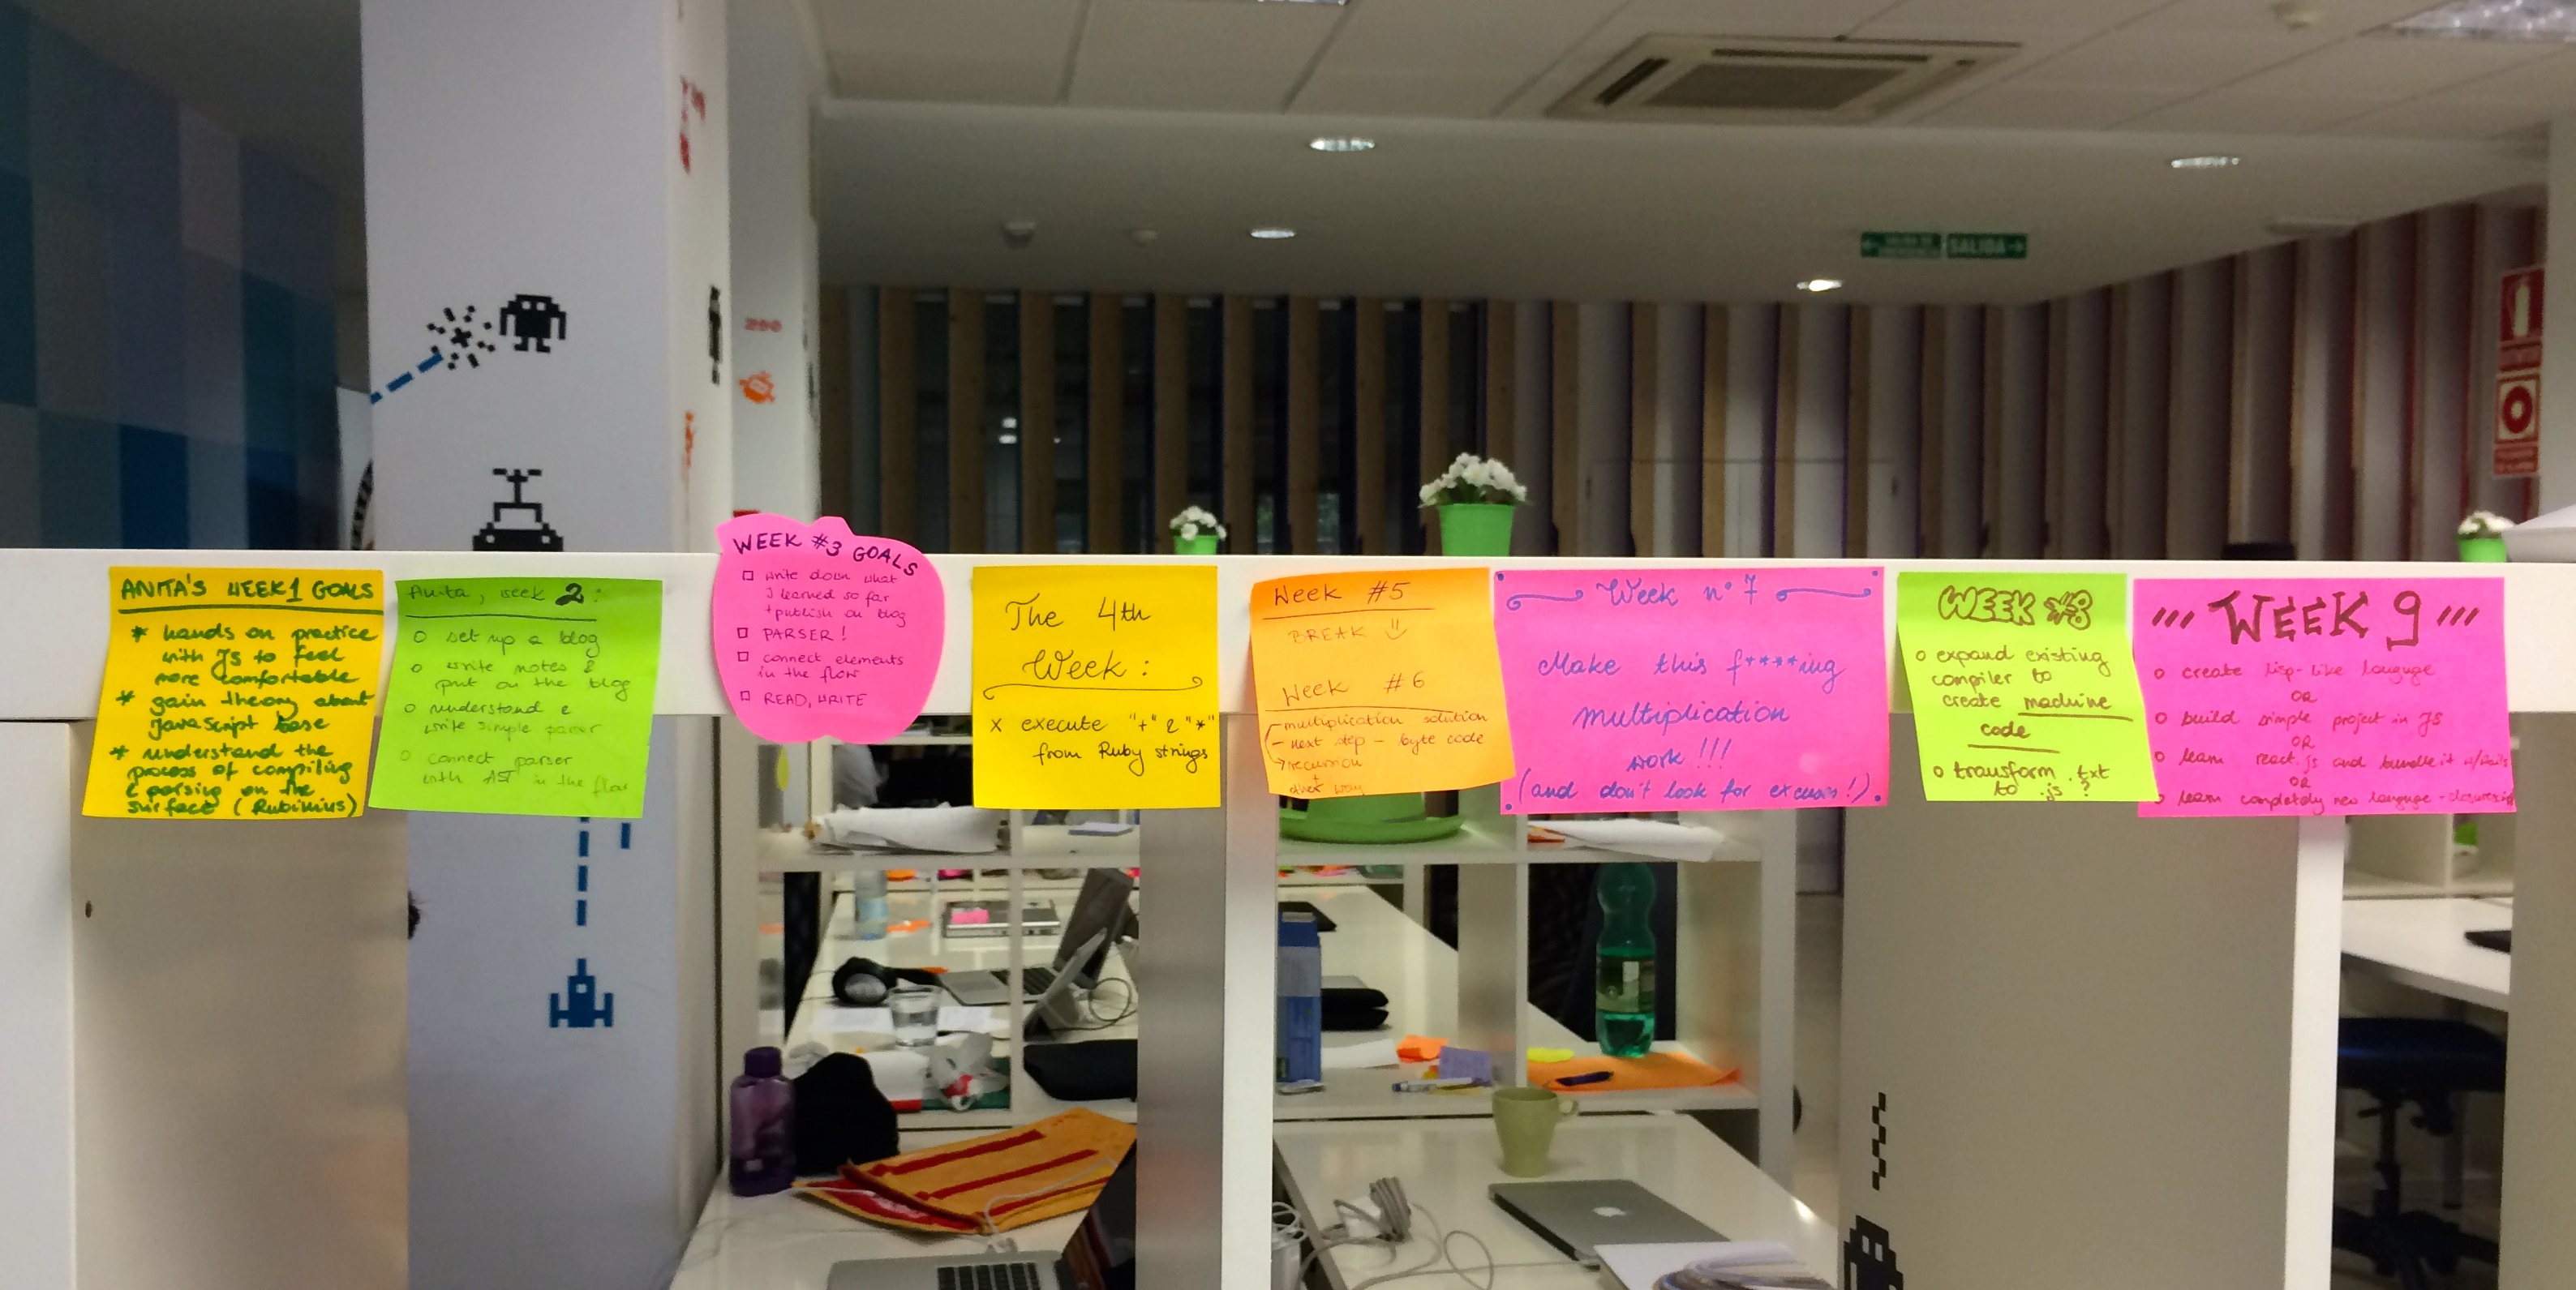 ANITA'S WEEK1 GOALS
* hands on practice
with JS to feel
more comfortable
* gain theory about
JavaScript base
* understand the
process of compiling
& parsing on the
surface (Rubinius)
Anita, week 2:
o set up a blog
o write notes &
put on the blog
o understand &
write simple parser
o connect parser
with AST in the flow
WEEK #3 GOALS
□ write down what
I learned so far
+ publish on blog
□ PARSER!
□ connect elements
in the flow
□ READ, WRITE
The 4th
Week:
x execute "+" & "*"
from Ruby strings
Week #5
BREAK
Week #6
- multiplication solution
- next step - byte code
→ recursion
+
other way
Week nº 7
Make this f****ing
multiplication
work!!!
(and don't look for excuses!)
WEEK #8
o expand existing
compiler to
create machine
code
o transform .txt
to .js ?
/// WEEK 9 ///
o create lisp-like language
OR
o build simple project in JS
OR
o learn react.js and bundle it w/Rails
OR
o learn completely new language -
SALIDA